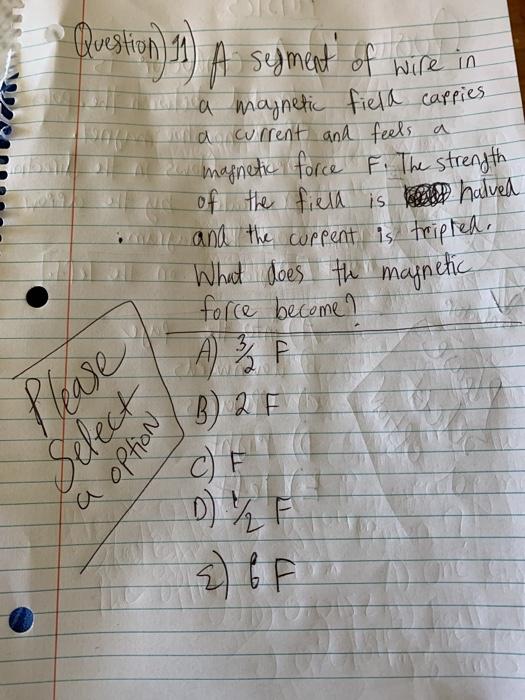 Question) 11) A segment of wire in
a magnetic field carries
a current and feels a
magnetic force F. The strength
of the field is halved
and the current is tripled.
What does the magnetic
force become?
A) 3/2 F
B) 2 F
C) F
D) 1/2 F
E) 6 F
Please
Select
a option